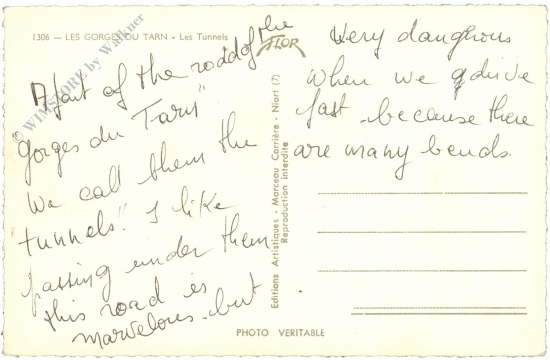 1306 - LES GORGES DU TARN - Les Tunnels
FLOR
© WIMSTORE by Walkner
A part of the road of the
"Gorges du Tarn"
We call them the
tunnels". I like
passing under them
this road is
marvelous - but
Very dangerous
When we drive
fast because there
are many bends.
Editions Artistiques - Marceau Carrière - Niort (7)
Reproduction interdite
PHOTO VERITABLE